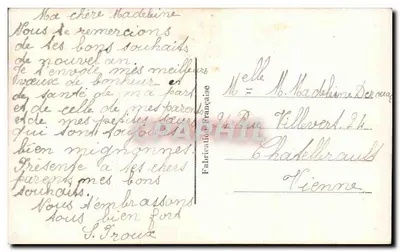 Ma chère Madeleine
Nous te remercions
de tes bons souhaits
de nouvel an.
Je t'envoie mes meilleurs
vœux de bonheur et
de santé de ma part
et de celle de mes parents
et de mes petites sœurs
qui sont toujours
bien mignonnes.
Présente à tes chers
parents mes bons
souhaits.
Nous t'embrassons
tous bien fort
S. Proux
Fabrication Française
Melle M. Madeleine
Villevert 24
Chatellerault
Vienne